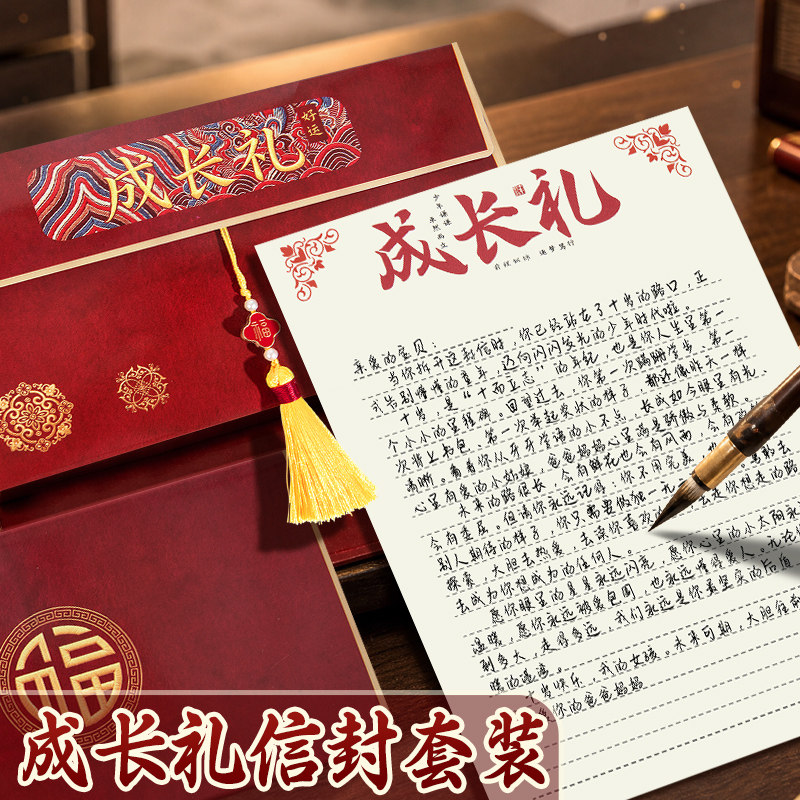 好运
成长礼
福
福
少年谦谦
未然而立
成长礼
前程似锦 逐梦笃行
亲爱的宝贝：
当你拆开这封信时，你已经站在了十岁的路口，正
式告别懵懂的童年，迈向闪闪发光的少年时代啦。
十岁，是“十而立志”的年纪，也是你人生里第一
个小小的里程碑。回望过去，你第一次蹒跚学步、第一
次背上书包、第一次举起奖状的样子，都还像昨天一样
清晰。看着你从牙牙学语的小不点，长成如今眼里有光、
心里有爱的小姑娘，爸爸妈妈心里满是骄傲与柔软。
未来的路很长，会有鲜花也会有风雨，会有
会有委屈。但请你永远记得，你不用完美，
别人期待的样子，你只需要做独一无
探索、大胆去热爱，去 你喜欢的 你想走的路
去成为你想成为的任何人。
愿你眼里的星星永远闪亮，愿你心里的小太阳永
温暖，愿你永远被爱包围，也永远懂得爱人。无论你
到多大，走得多远，我们永远是你最坚实的后盾
暖的港湾。
十岁快乐，我的女孩。未来可期，大胆前
你的爸爸妈妈
成长礼信封套装